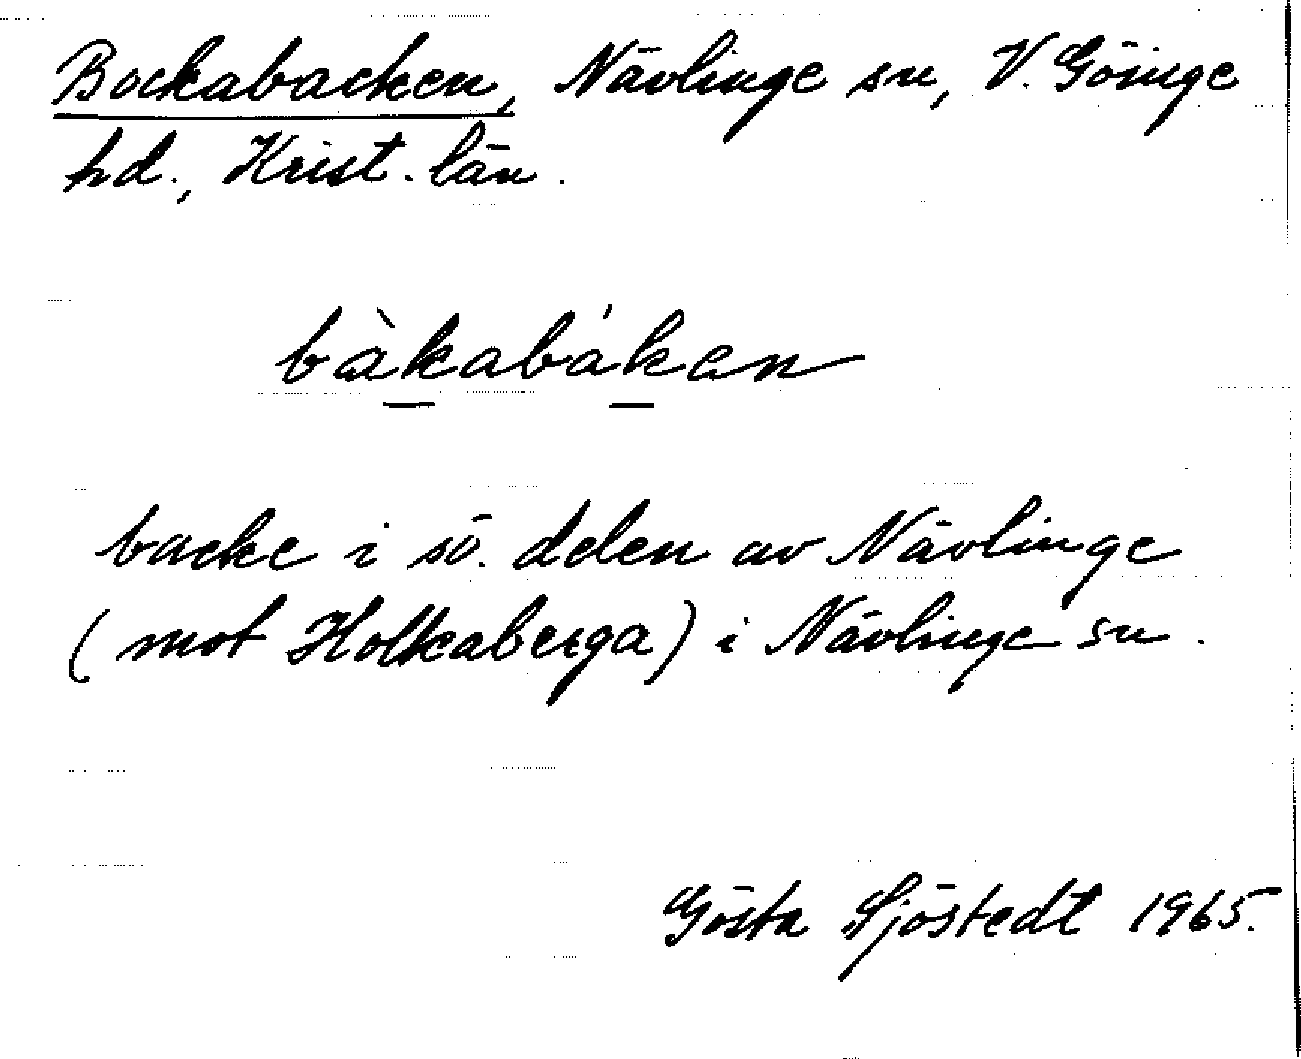 Bockabacken, Nävlinge sn, V. Göinge
hd., Krist. län.
bàkabáken
backe i sö. delen av Nävlinge
(mot Holkaberga) i Nävlinge sn.
Gösta Sjöstedt 1965.